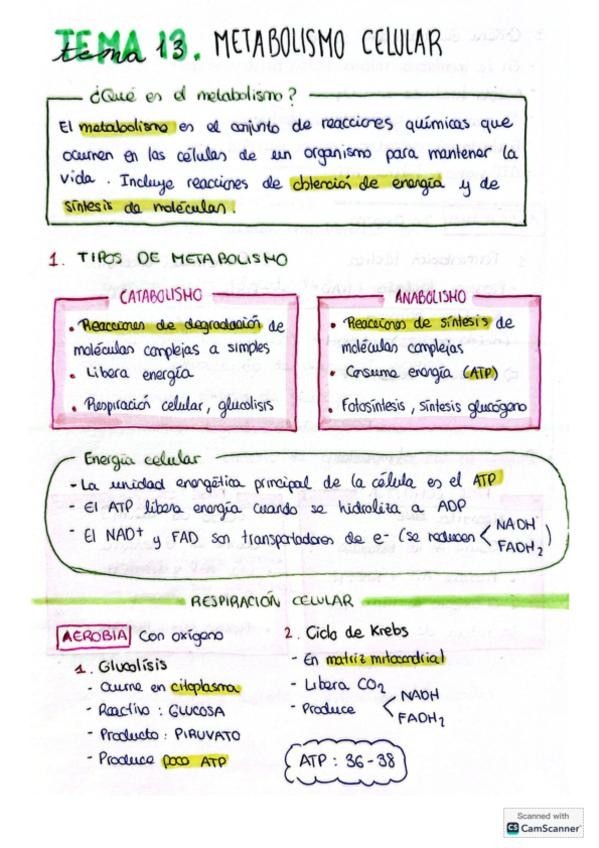 TEMA 13. METABOLISMO CELULAR
tema
¿Qué es el metabolismo?
El metabolismo es el conjunto de reacciones químicas que
ocurren en las células de un organismo para mantener la
vida. Incluye reacciones de obtención de energía y de
síntesis de moléculas.
1. TIPOS DE METABOLISMO
CATABOLISMO
• Reacciones de degradación de
moléculas complejas a simples
• Libera energía
• Respiración celular, glucolisis
ANABOLISMO
• Reacciones de síntesis de
moléculas complejas
• Consume energía (ATP)
• Fotosíntesis, síntesis glucógeno
Energía celular
- La unidad energética principal de la célula es el ATP
- El ATP libera energía cuando se hidroliza a ADP
- El NAD+ y FAD son transportadores de e- (se reducen < NADH FADH2)
RESPIRACIÓN CELULAR
AEROBIA Con oxígeno
1. Glucolísis
- Ocurre en citoplasma
- Reactivo: GLUCOSA
- Producto: PIRUVATO
- Produce poco ATP
2. Ciclo de Krebs
- En matriz mitocondrial
- Libera CO2
- Produce < NADH
FADH2
ATP: 36-38
Scanned with
CS CamScanner